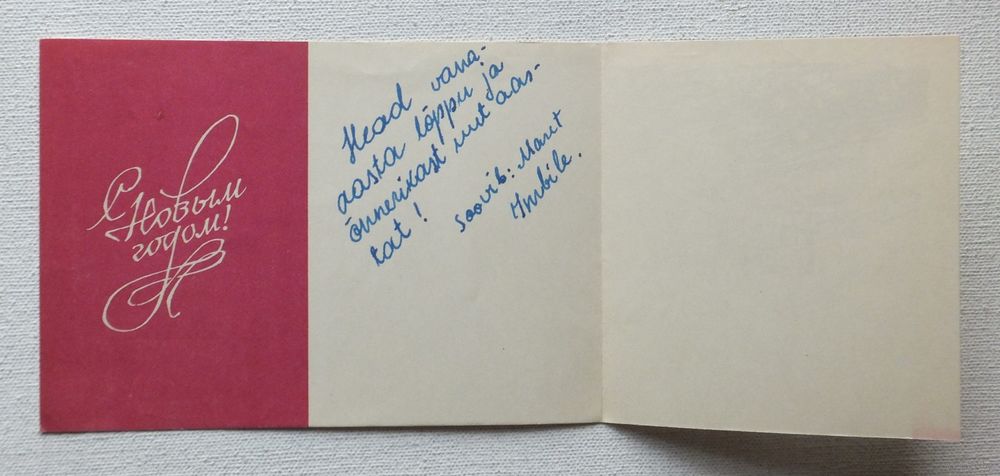 С Новым
годом!
Head vana-
aasta lõppu ja
õnnerikast uut aas-
tat!
Soovib: Marit
Imbile.